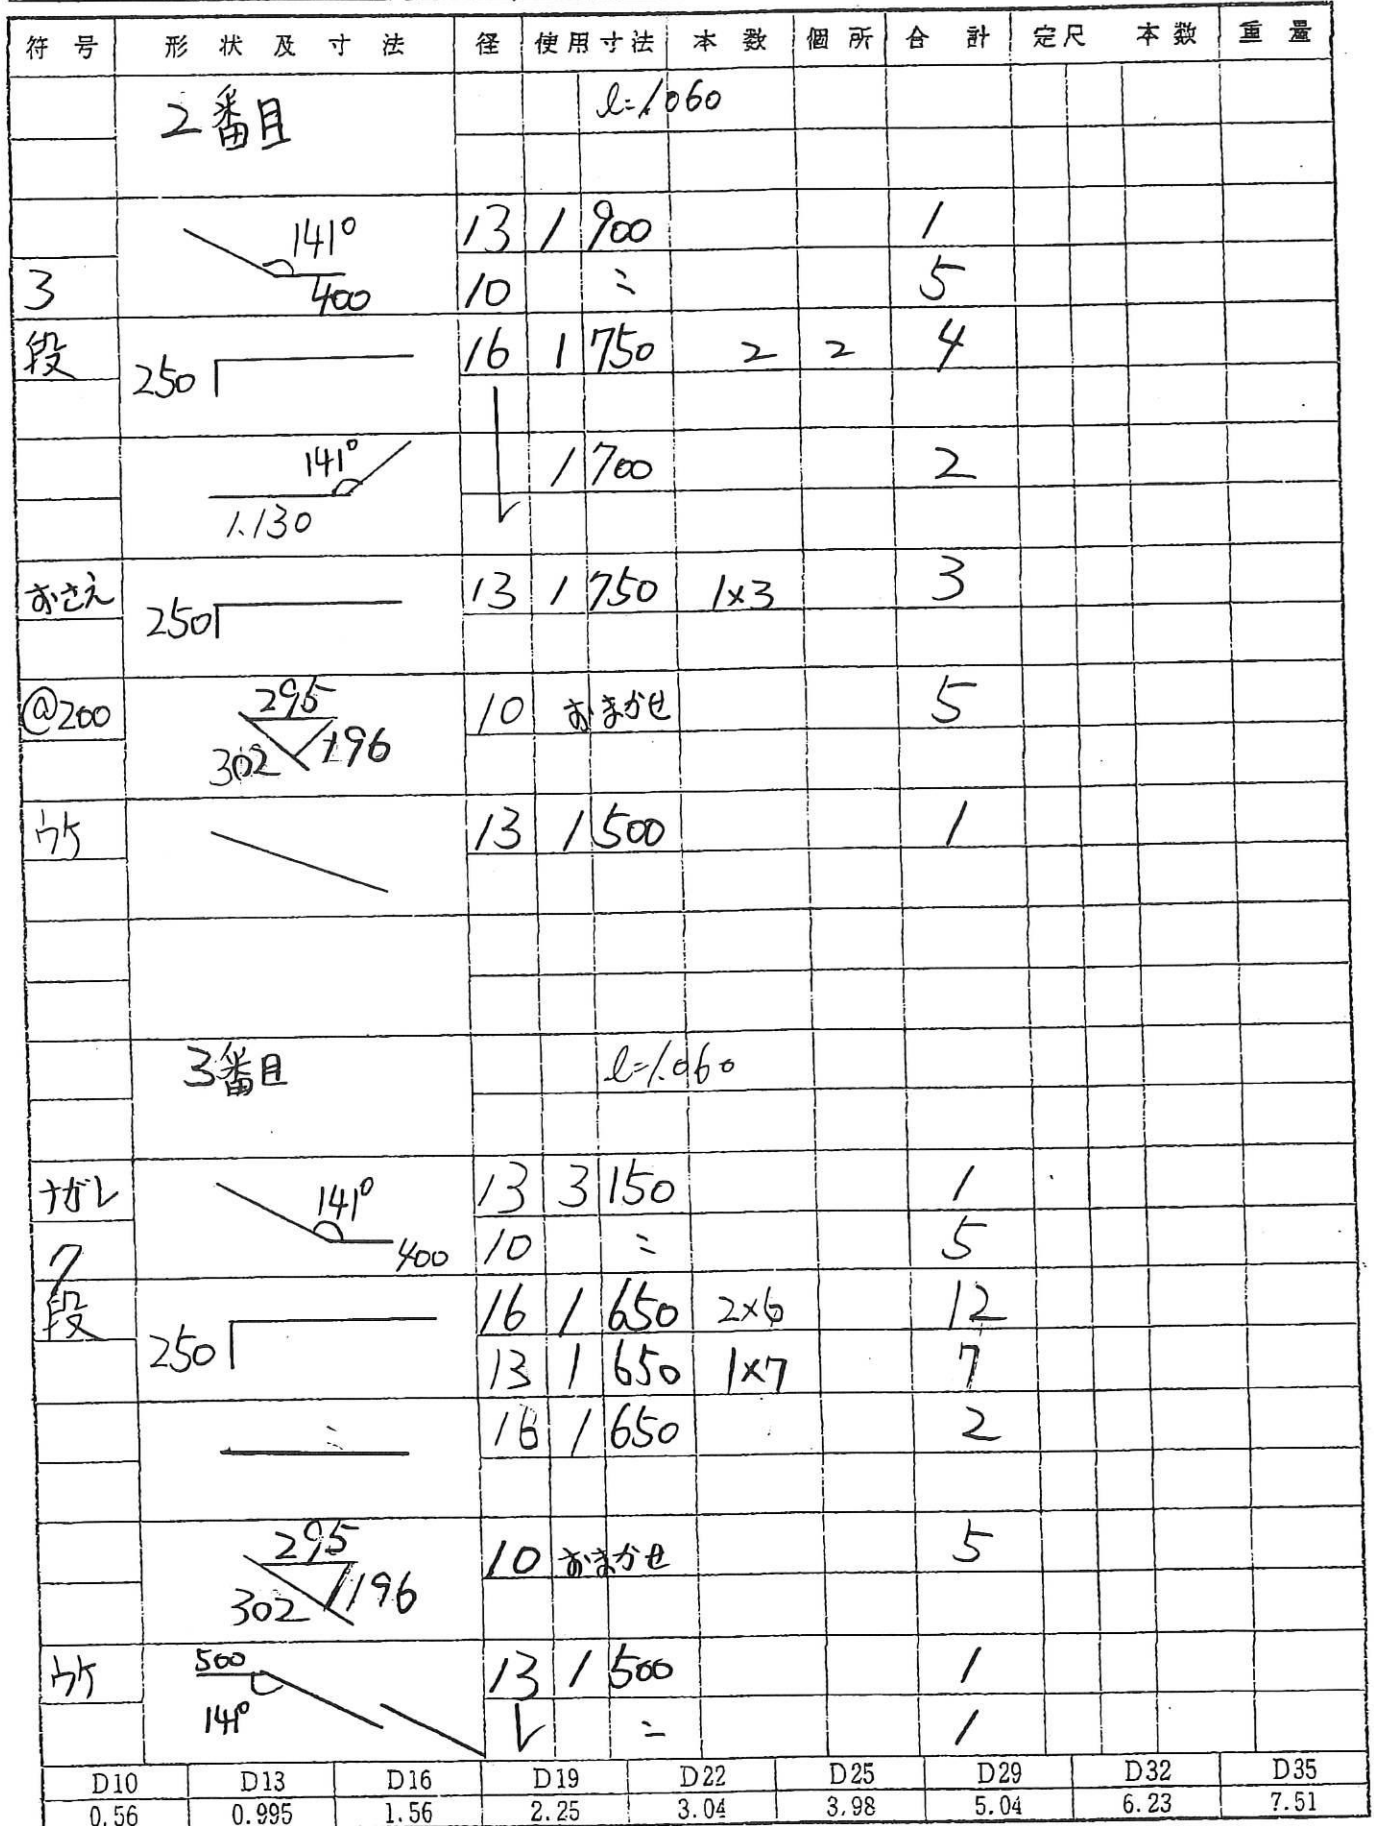 符号 形状及寸法 径 使用寸法 本数 個所 合計 定尺 本数 重量
2番目 l=1.060
141° 400 13 1 900 1
3 10 〃 5
段 250 16 1 750 2 2 4
141° 1.130 1 700 2
おさえ 250 13 1 750 1×3 3
@200 295 302 196 10 おまかせ 5
ウケ 13 1 500 1
3番目 l=1.060
ナガレ 141° 400 13 3 150 1
7 10 〃 5
段 250 16 1 650 2×6 12
13 1 650 1×7 7
16 1 650 2
295 302 196 10 おまかせ 5
ウケ 500 141° 13 1 500 1
〃 1
D10 D13 D16 D19 D22 D25 D29 D32 D35
0.56 0.995 1.56 2.25 3.04 3.98 5.04 6.23 7.51